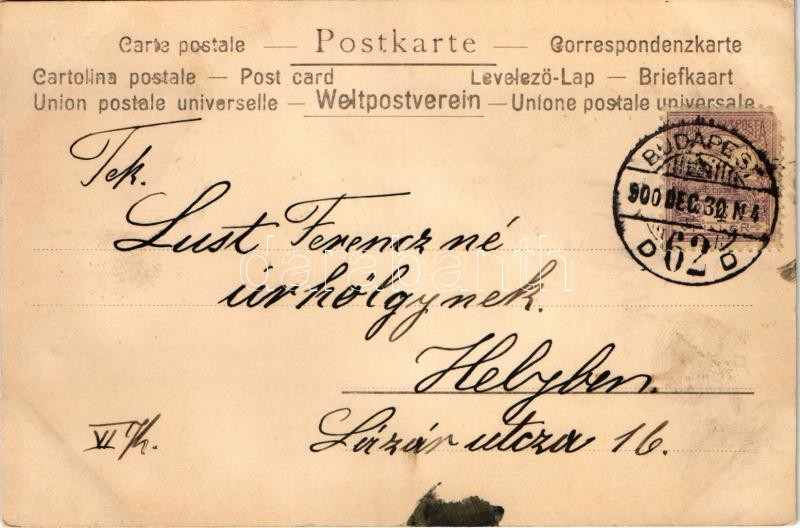 Carte postale — Postkarte — Correspondenzkarte
Cartolina postale — Post card Levelezö-Lap — Briefkaart
Union postale universelle — Weltpostverein — Unione postale universale
BUDAPEST
900 DEC. 30 N 4
D 62 D
Tek.
Lust Ferencz né
úrhölgynek.
Helyben.
VI. k.
Lázár utcza 16.
darabanth